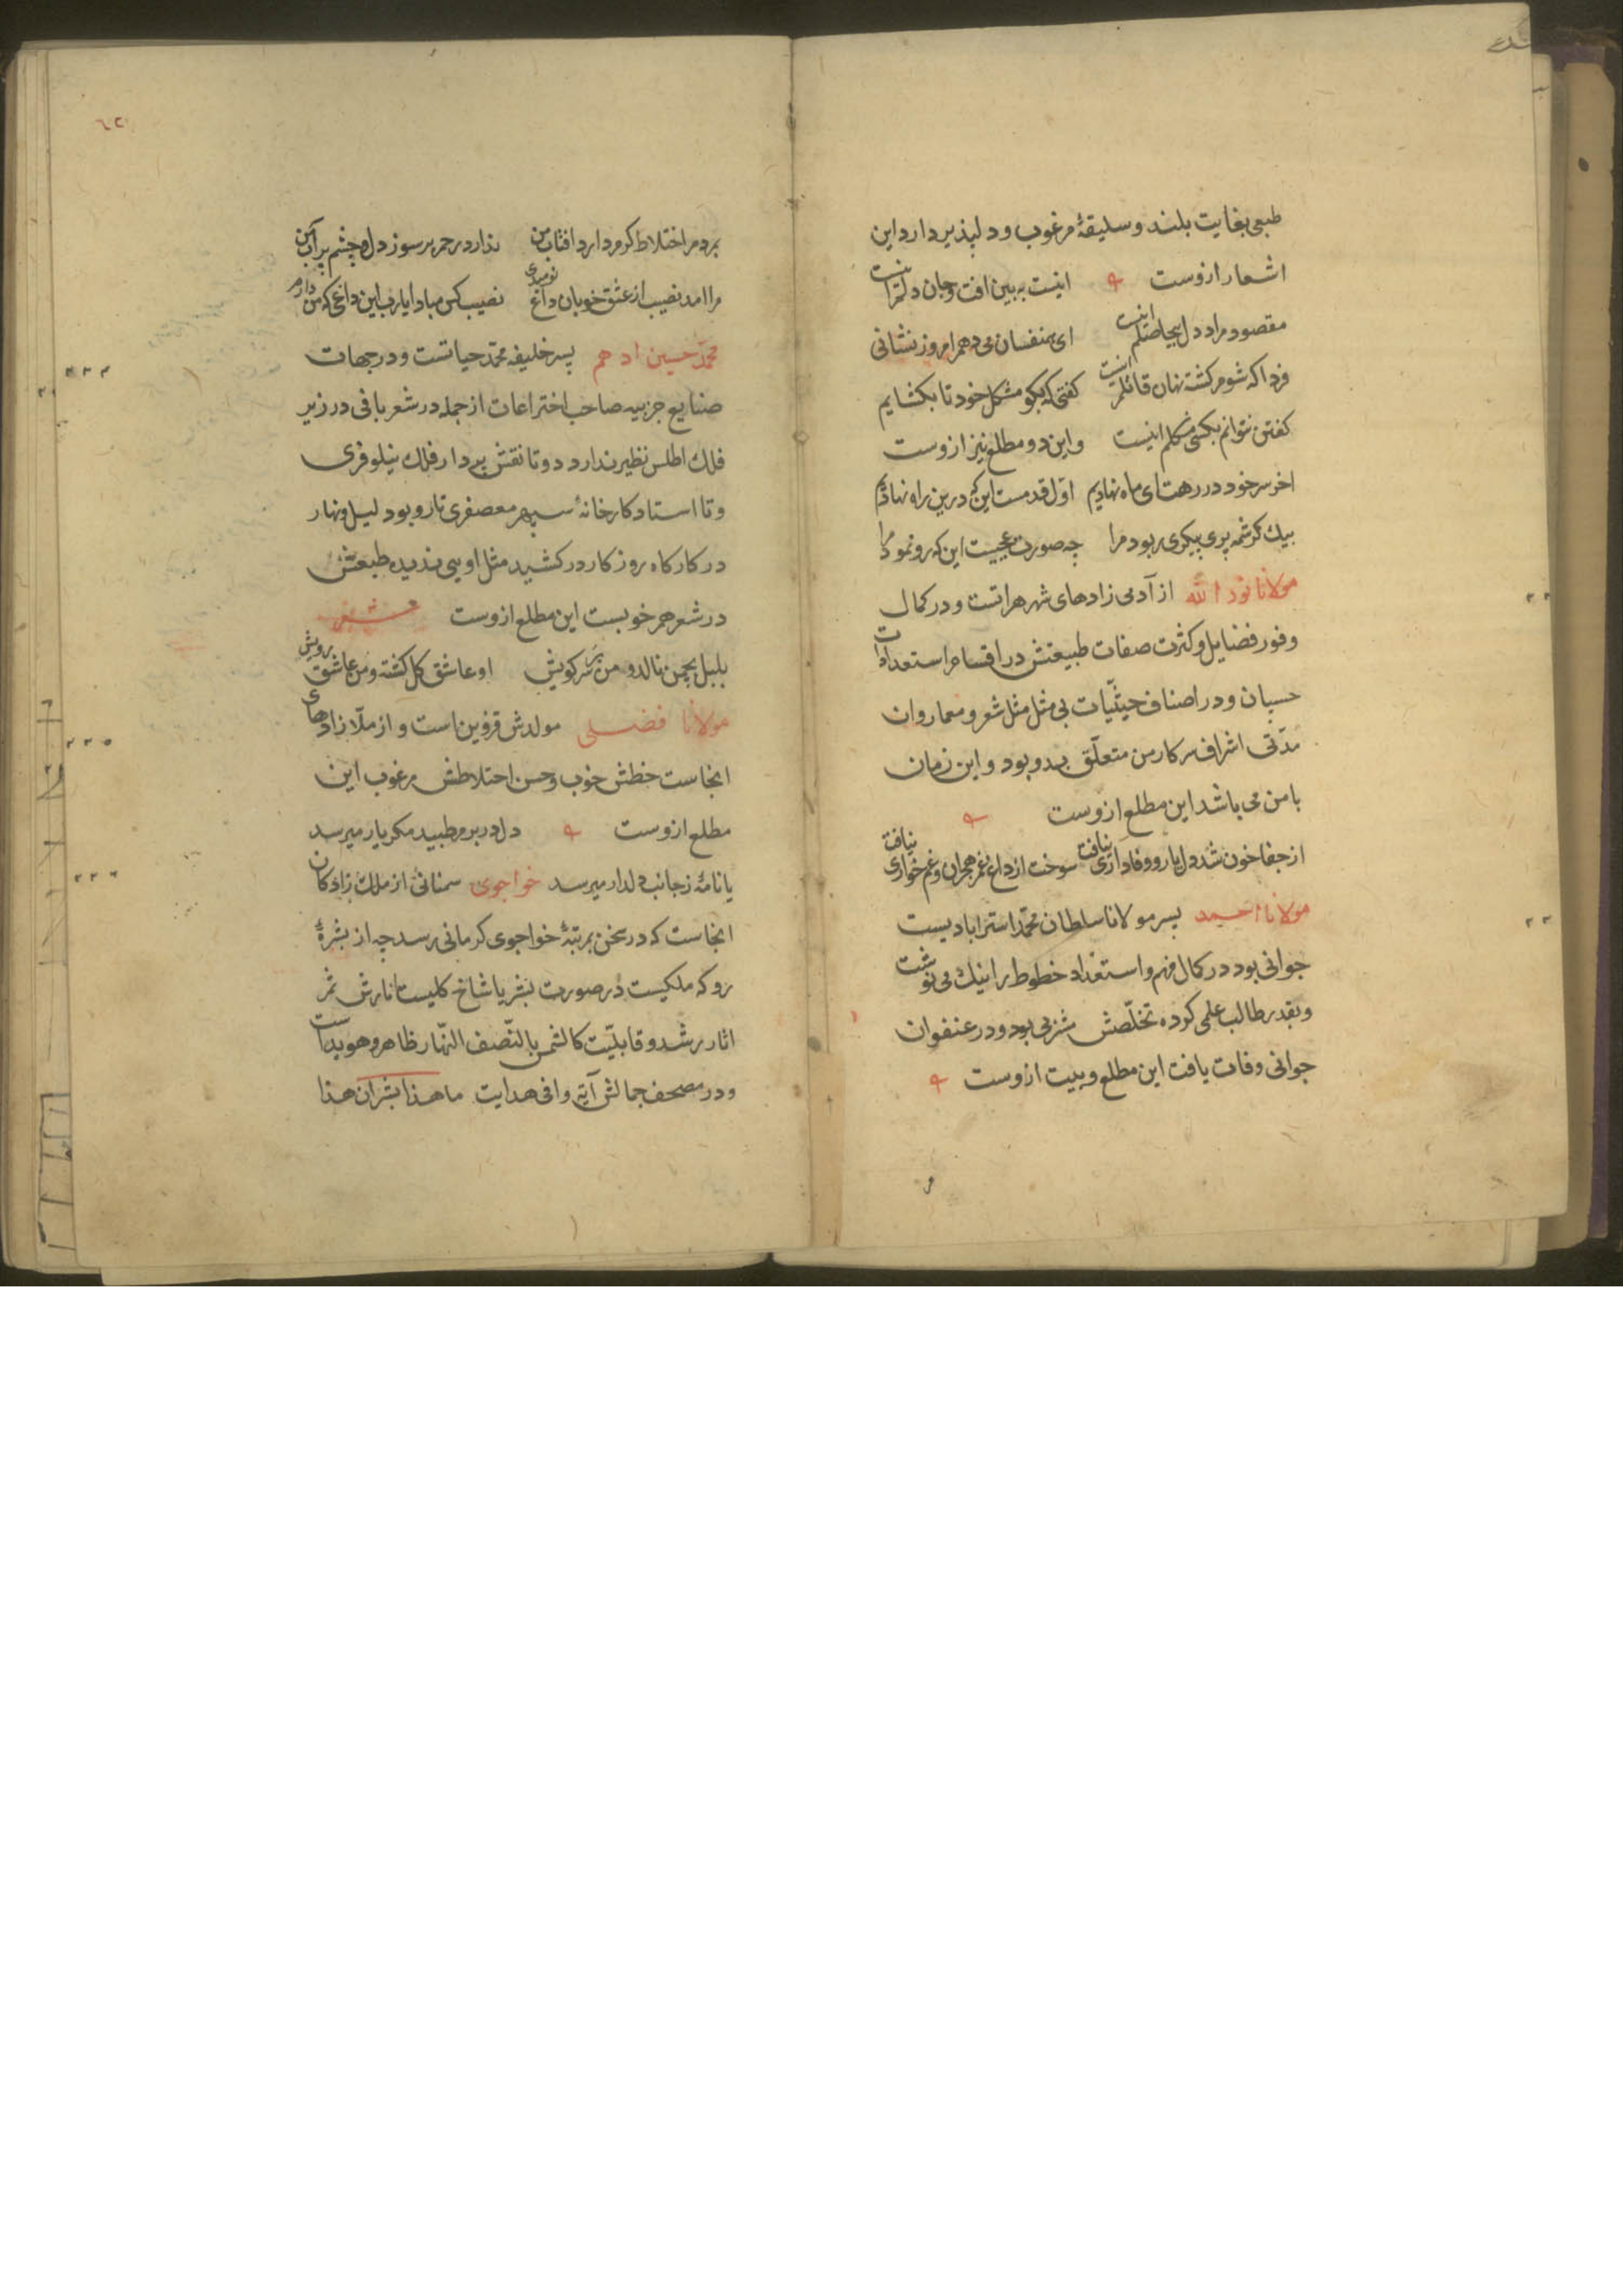 طبعی بغایت بلند و سلیقهٔ مرغوب و دلپذیر دارد این
اشعار ازوست اینست به بین افت و جان دلم اینست
مقصود مراد دل بیحاصلم اینست ای همنفسان می دهم امروز نشانی
فردا که شوم کشته نهان قاتلم اینست کفتی که بکو مشکل خود تا بکشایم
کفتن نتوانم بکسی مشکلم اینست و این دو مطلع نیز ازوست
اخر سر خود در رهت ای ماه نهادیم اوّل قدمست این که درین راه نهادیم
بیك کرشمه پری پیکری ربود مرا چه صورت عجیبست این که رو نمود مرا
مولانا نور الله از آدمی زادهای شهر هراتست و در کمال
وفور فضایل و کثرت صفات طبیعتش در اقسام استعدادات
حسبان و در اصناف حیثّیات بی مثل مثل شعر و معما روان
مدّتی اشراف سرکار من متعلّق بدو بود و این زمان
با من می باشد این مطلع ازوست
از جفا خون شد دل یار و وفاداری نیافت سوخت از داغ غم هجران و غم خواری نیافت
مولانا احمد پسر مولانا سلطان محمّد استراباد یست
جوانی بود در کمال فهم و استعداد خطوط را نیك می نوشت
و بقدر طالب علمی کرده تخلّصش شربی بود و در عنفوان
جوانی وفات یافت این مطلع و بیت ازوست
٦٢
بمردم اختلاط کرم دارد افتاب من ندارد رحم بر سوز دل و چشم پر آب من
مرا امد نصیب از عشق خوبان داغ نومیدی نصیب کس مبادا یارب این داغی که من دارم
محمّد حسین ادهم پسر خلیفه محمّد حیاتست و در جهات
صنایع جزییه صاحب اختراعات از جمله در شعر بافی در زیر
فلك اطلس نظیر ندارد و تا نقش پردار فلك نیلوفری
و تا استاد کارخانهٔ سپهر معصفری تار و بود لیل و نهار
در کارکاه روزکار در کشید مثل اویی ندیده طبعش
در شعر هم خوبست این مطلع ازوست
بلبل بچمن نالد و من بر سر کویش او عاشق کل کشته و من عاشق رویش
مولانا فضلی مولدش قزوین است و از ملّا زادهای
انجاست خطش خوب و حسن اختلاطش مرغوب این
مطلع ازوست دل در برم طبید مکر یار میرسد
یا نامهٔ ز جانب دلدار میرسد خواجوی سمنانی از ملك زادکان
انجاست که در سخن بمرتبهٔ خواجوی کرمانی رسد چه از بشرهٔ
رو که ملکیست در صورت بشر یا شاخ کلیست نارش ثمر
اثار رشد و قابلیّت کالشمس بالنّصف النّهار ظاهر و هویداست
و در مصحف جمالش آیة وافی هدایت ما هذا بشر ان هذا